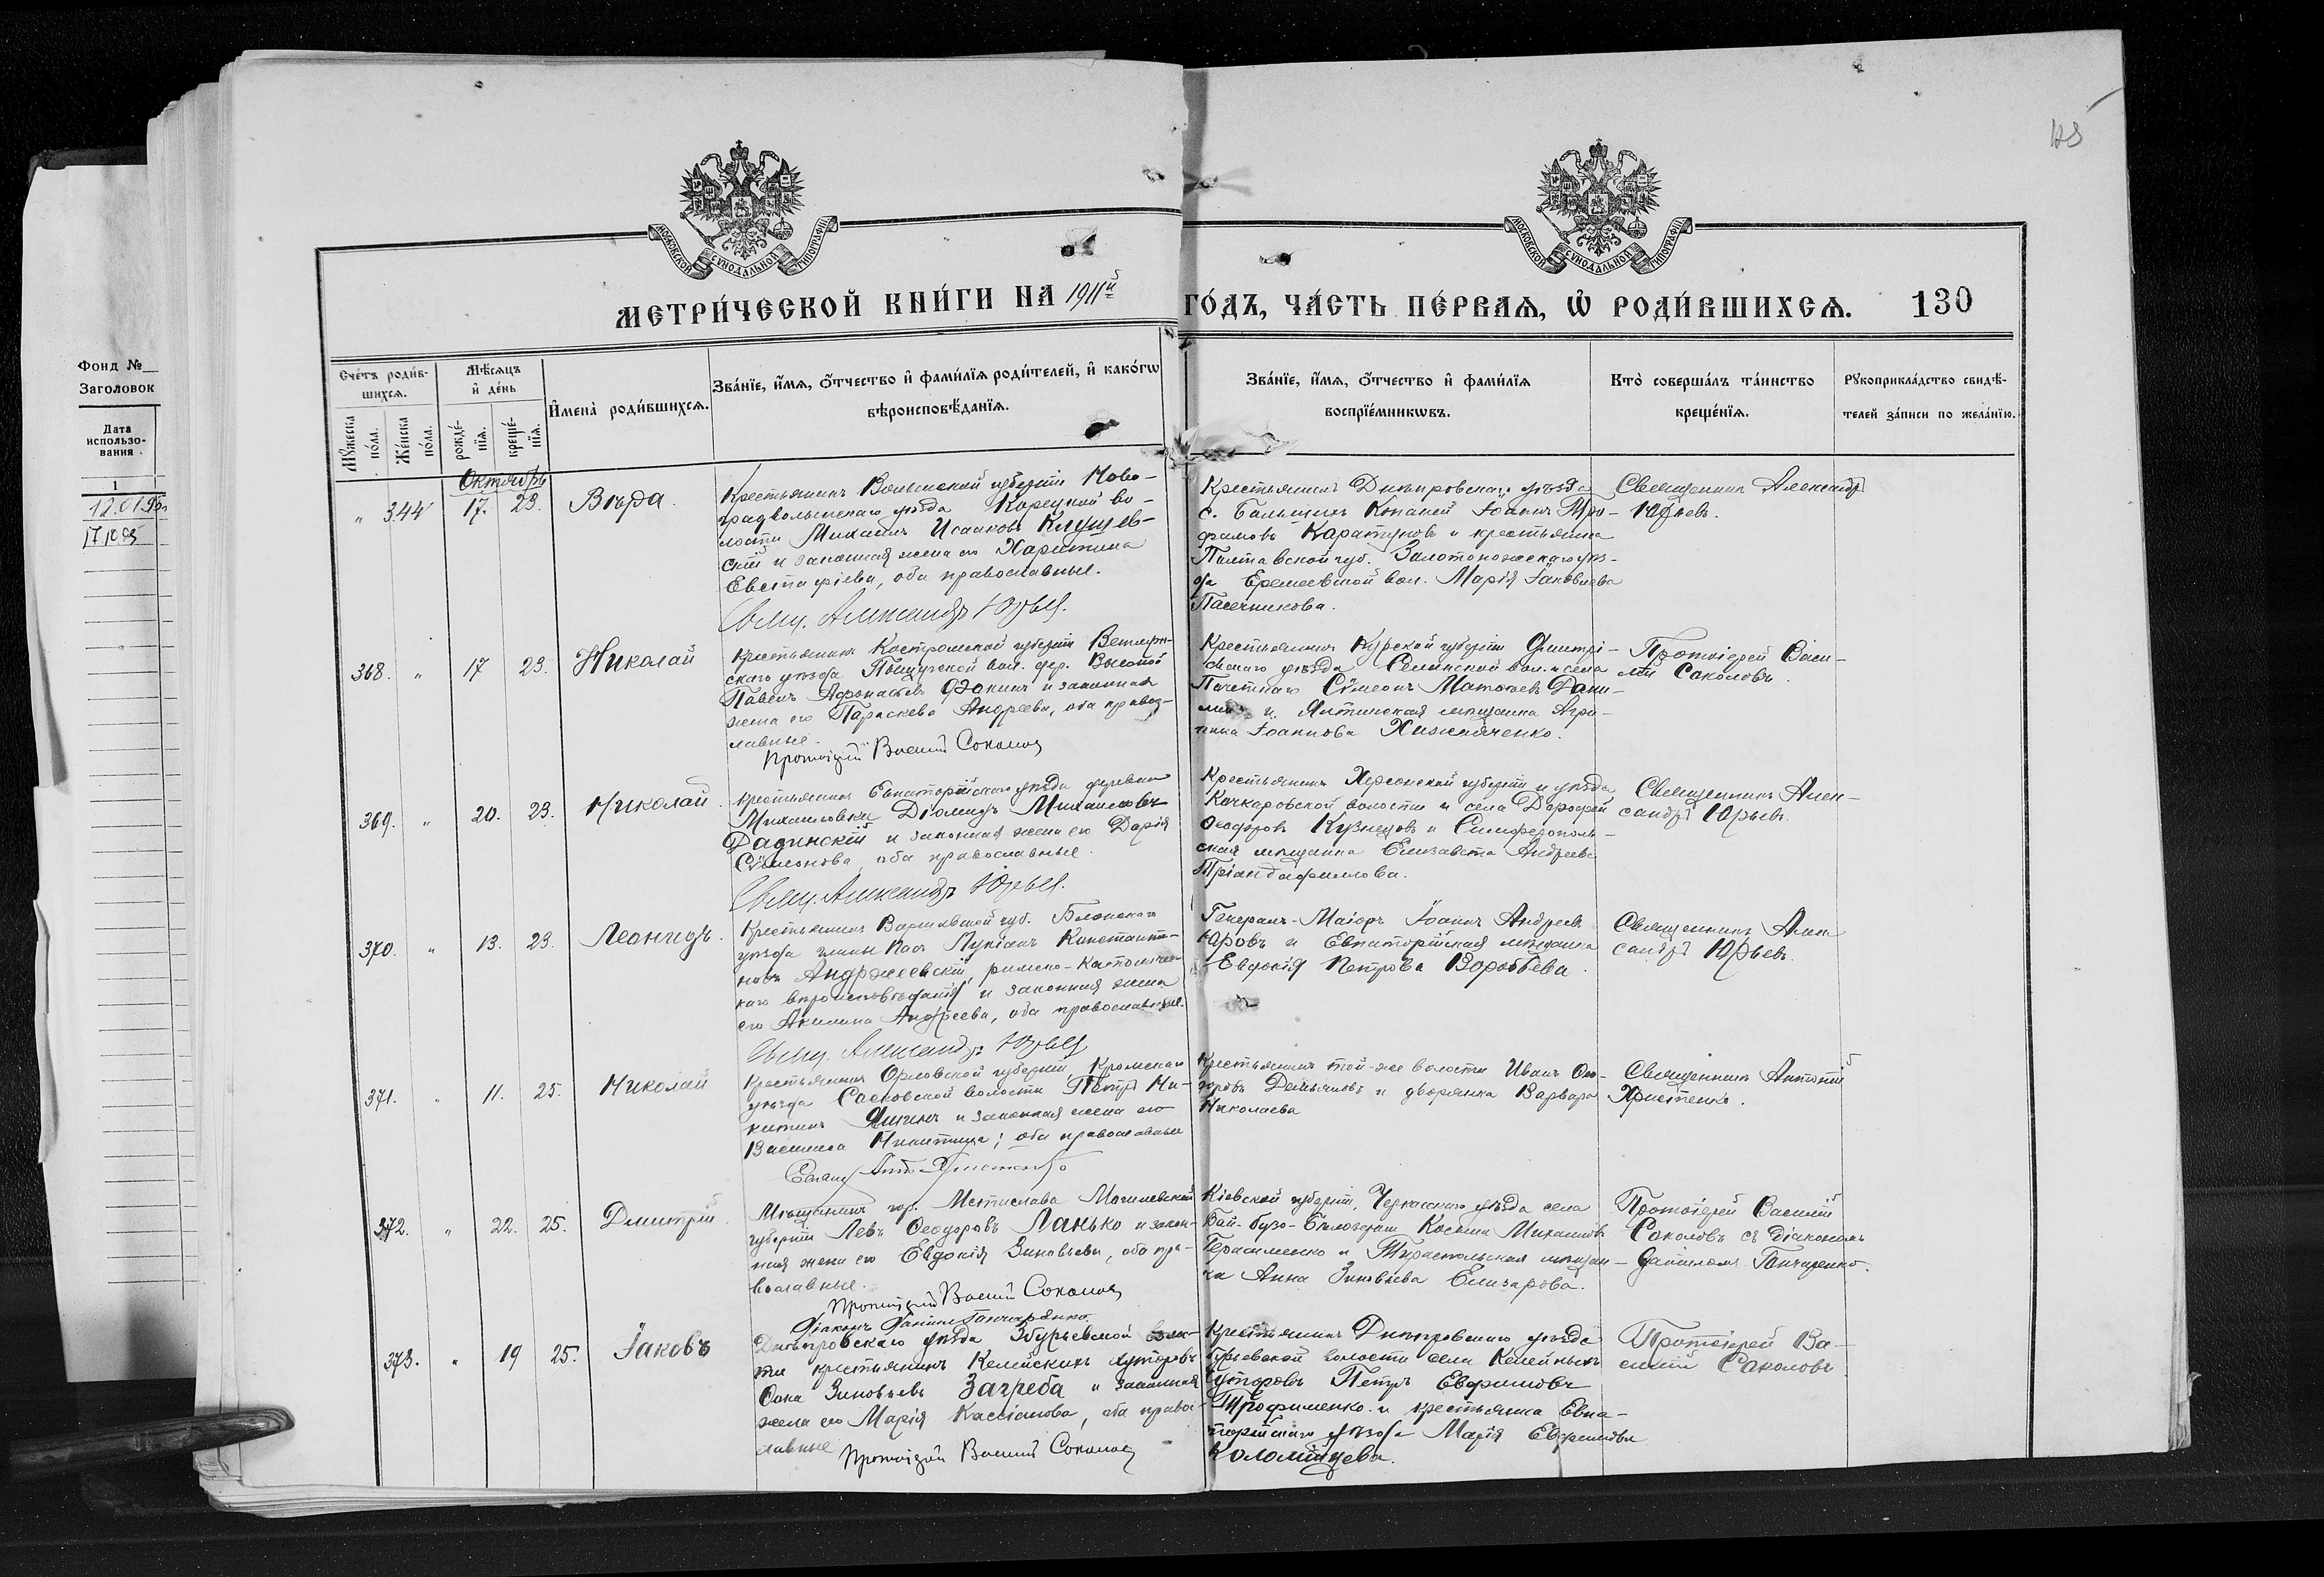 125
МОСКОВСКОЙ СУНОДАЛЬНОЙ ТИПОГРАФІИ
МОСКОВСКОЙ СУНОДАЛЬНОЙ ТИПОГРАФІИ
МЕТРИ́ЧЕСКОЙ КНИ́ГИ НА 1911й ГО́ДЪ, ЧА́СТЬ ПЕ́РВАѦ, Ѡ РОДИ́ВШИХСѦ. 130
Фонд №
Заголовок
Дата
использо-
вания
1
12.01.95
17.10.95
Сче́тъ роди́в-
шихсѧ.
Мꙋ́жеска по́ла.
Же́нска по́ла.
Мѣ́сѧцъ и҆ де́нь
рожде́-нїѧ.
креще́-нїѧ.
И҆мена̀ роди́вшихсѧ.
Зва́нїе, и҆́мѧ, ѻ҆́тчество и҆ фами́лїѧ роди́телей, и҆ како́гѡ
вѣроисповѣ́данїѧ.
Зва́нїе, и҆́мѧ, ѻ҆́тчество и҆ фами́лїѧ
воспрїе́мникѡвъ.
Кто̀ соверша́лъ та́инство
креще́нїѧ.
Рꙋкоприкла́дство свидѣ́-
телей за́писи по жела́нїю.
Октябрь
" 344 17. 23. Вѣра.
Крестьянинъ Волынской губерніи Ново-
градволынскаго уѣзда Корецкой во-
лости Михаилъ Исааковъ
и законная жена его Харитина
Евстафіева, оба православные.
Свящ. Александръ Юрьев.
Крестьянинъ Днѣпровскаго уѣзда
с. Большихъ Копаней Іоаннъ Тро-
фимовъ Каратуновъ и крестьянка
Полтавской губ. Золотоношскаго уѣз-
да Еремеевской вол. Марія Іаковлева
Пасечникова.
Священникъ Александръ
Юрьевъ.
368. " 17 23. Николай
Крестьянинъ Костромской губерніи Ветлуж-
скаго уѣзда Пыщугской вол. дер. Высокой
Павелъ Афонасьевъ и законная
жена его Параскева Андреева, оба правос-
лавные.
Протоіерей Василій Соколов
Крестьянинъ Курской губерніи Дмитрі-
евскаго уѣзда вол. и села
Сѵмеонъ Матвѣевъ Дани-
и Ялтинская мѣщанка Агри-
пина Іоаннова Хижняченко.
Протоіерей Васи-
лій Соколовъ.
369. " 20. 23. Николай.
Крестьянинъ Евпаторійскаго уѣзда деревни
Михайловки Діомидъ Михаиловъ
Дадинскій и законная жена его Дарія
Сѵмеонова оба православные.
Свящ. Александръ Юрьев.
Крестьянинъ Херсонской губерніи и уѣзда
Качкаровской волости и села Дорофей
Ѳеодоровъ Кузнецовъ и Симферополь-
ская мѣщанка Елизавета Андреева
Тріандафиллова.
Священникъ Алек-
сандръ Юрьевъ.
370. " 13. 23. Леонидъ.
Крестьянинъ Варшавской губ. Блонскаго
уѣзда гмины Пасъ Лукіанъ Константи-
новъ Андржеевскій, римско-католичес-
каго вѣроисповѣданія и законная жена
его Акилина Андреева, оба православные.
Свящ. Александръ Юрьев
Генералъ-Маіоръ Іоаннъ Андреев
и Евпаторійская мѣщанка
Евдокія Петрова Воробьева.
Священникъ Алек
сандръ Юрьевъ.
371. " 11. 25. Николай
Крестьянинъ Орловской губерніи, Кромскаго
уѣзда Сосковской волости Петръ Ни-
китинъ Яшинъ и законная жена его
Василиса Никитина; оба православные
Крестьянинъ той-же волости Иванъ Ѳео-
доровъ Демьяновъ и дворянка Варвара
Николаева
Священникъ Антоній
Христенко.
372. " 22. 25. Дмитрій.
Мѣщанинъ гор. Мстиславля Могилевской
губерніи Левъ Ѳеодоровъ Ланько и закон-
ная жена его Евдокія Зиновьева, оба пра-
вославные.
Протоіерей Василій Соколов
Діаконъ Даніилъ Гончаренко
Кіевской губерніи, Черкасскаго уѣзда села
Бай-бузо- Косьма Михаиловъ
Герасименко и Тираспольская мѣщан-
ка Анна Зиновьева Елизарова.
Протоіерей Василій
Соколовъ съ діакономъ
Даніиломъ Гончаренко.
373. " 19 25. Іаковъ
Днѣпровскаго уѣзда Збурьевской волос-
ти крестьянинъ Келейскихъ хуторовъ
Ѳома Зиновьевъ Загреба и законная
жена его Марія Кассіанова, оба правос-
лавные Протоіерей Василій Соколов
Крестьянинъ Днѣпровскаго уѣзда
волости села Келейныхъ
хуторовъ Петръ Евфимовъ
Трофименко и крестьянка Евпа-
торійскаго уѣзда Марія Евфимова
Коломійцева.
Протоіерей Ва-
силій Соколовъ